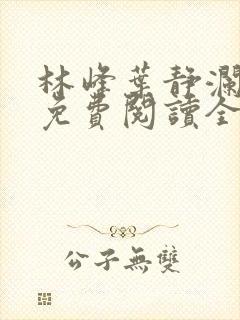 林峰葉靜瀾
免費閱讀全
公子無雙